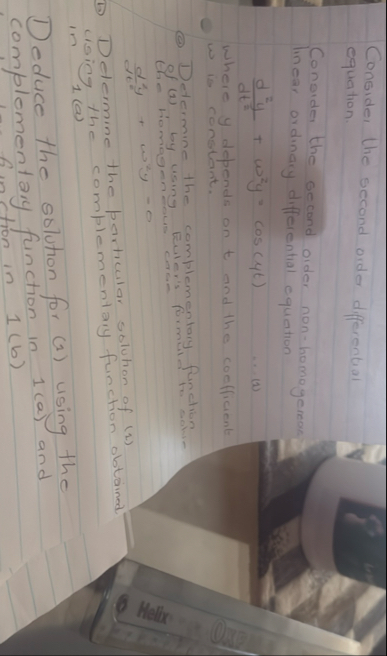 Consider the second order differential
equation.
Consider the second order non-homogeneous
linear ordinary differential equation
d²y/dt² + w²y = cos(4t) ... (1)
where y depends on t and the coefficient
w is constant.
a) Determine the complementary function
of (1) by using Euler's formula to solve
the homogeneous case
d²y/dt² + w²y = 0
b) Determine the particular solution of (1)
using the complementary function obtained
in 1(a)
Deduce the solution for (1) using the
complementary function in 1(a) and
function in 1(b)
6 Helix